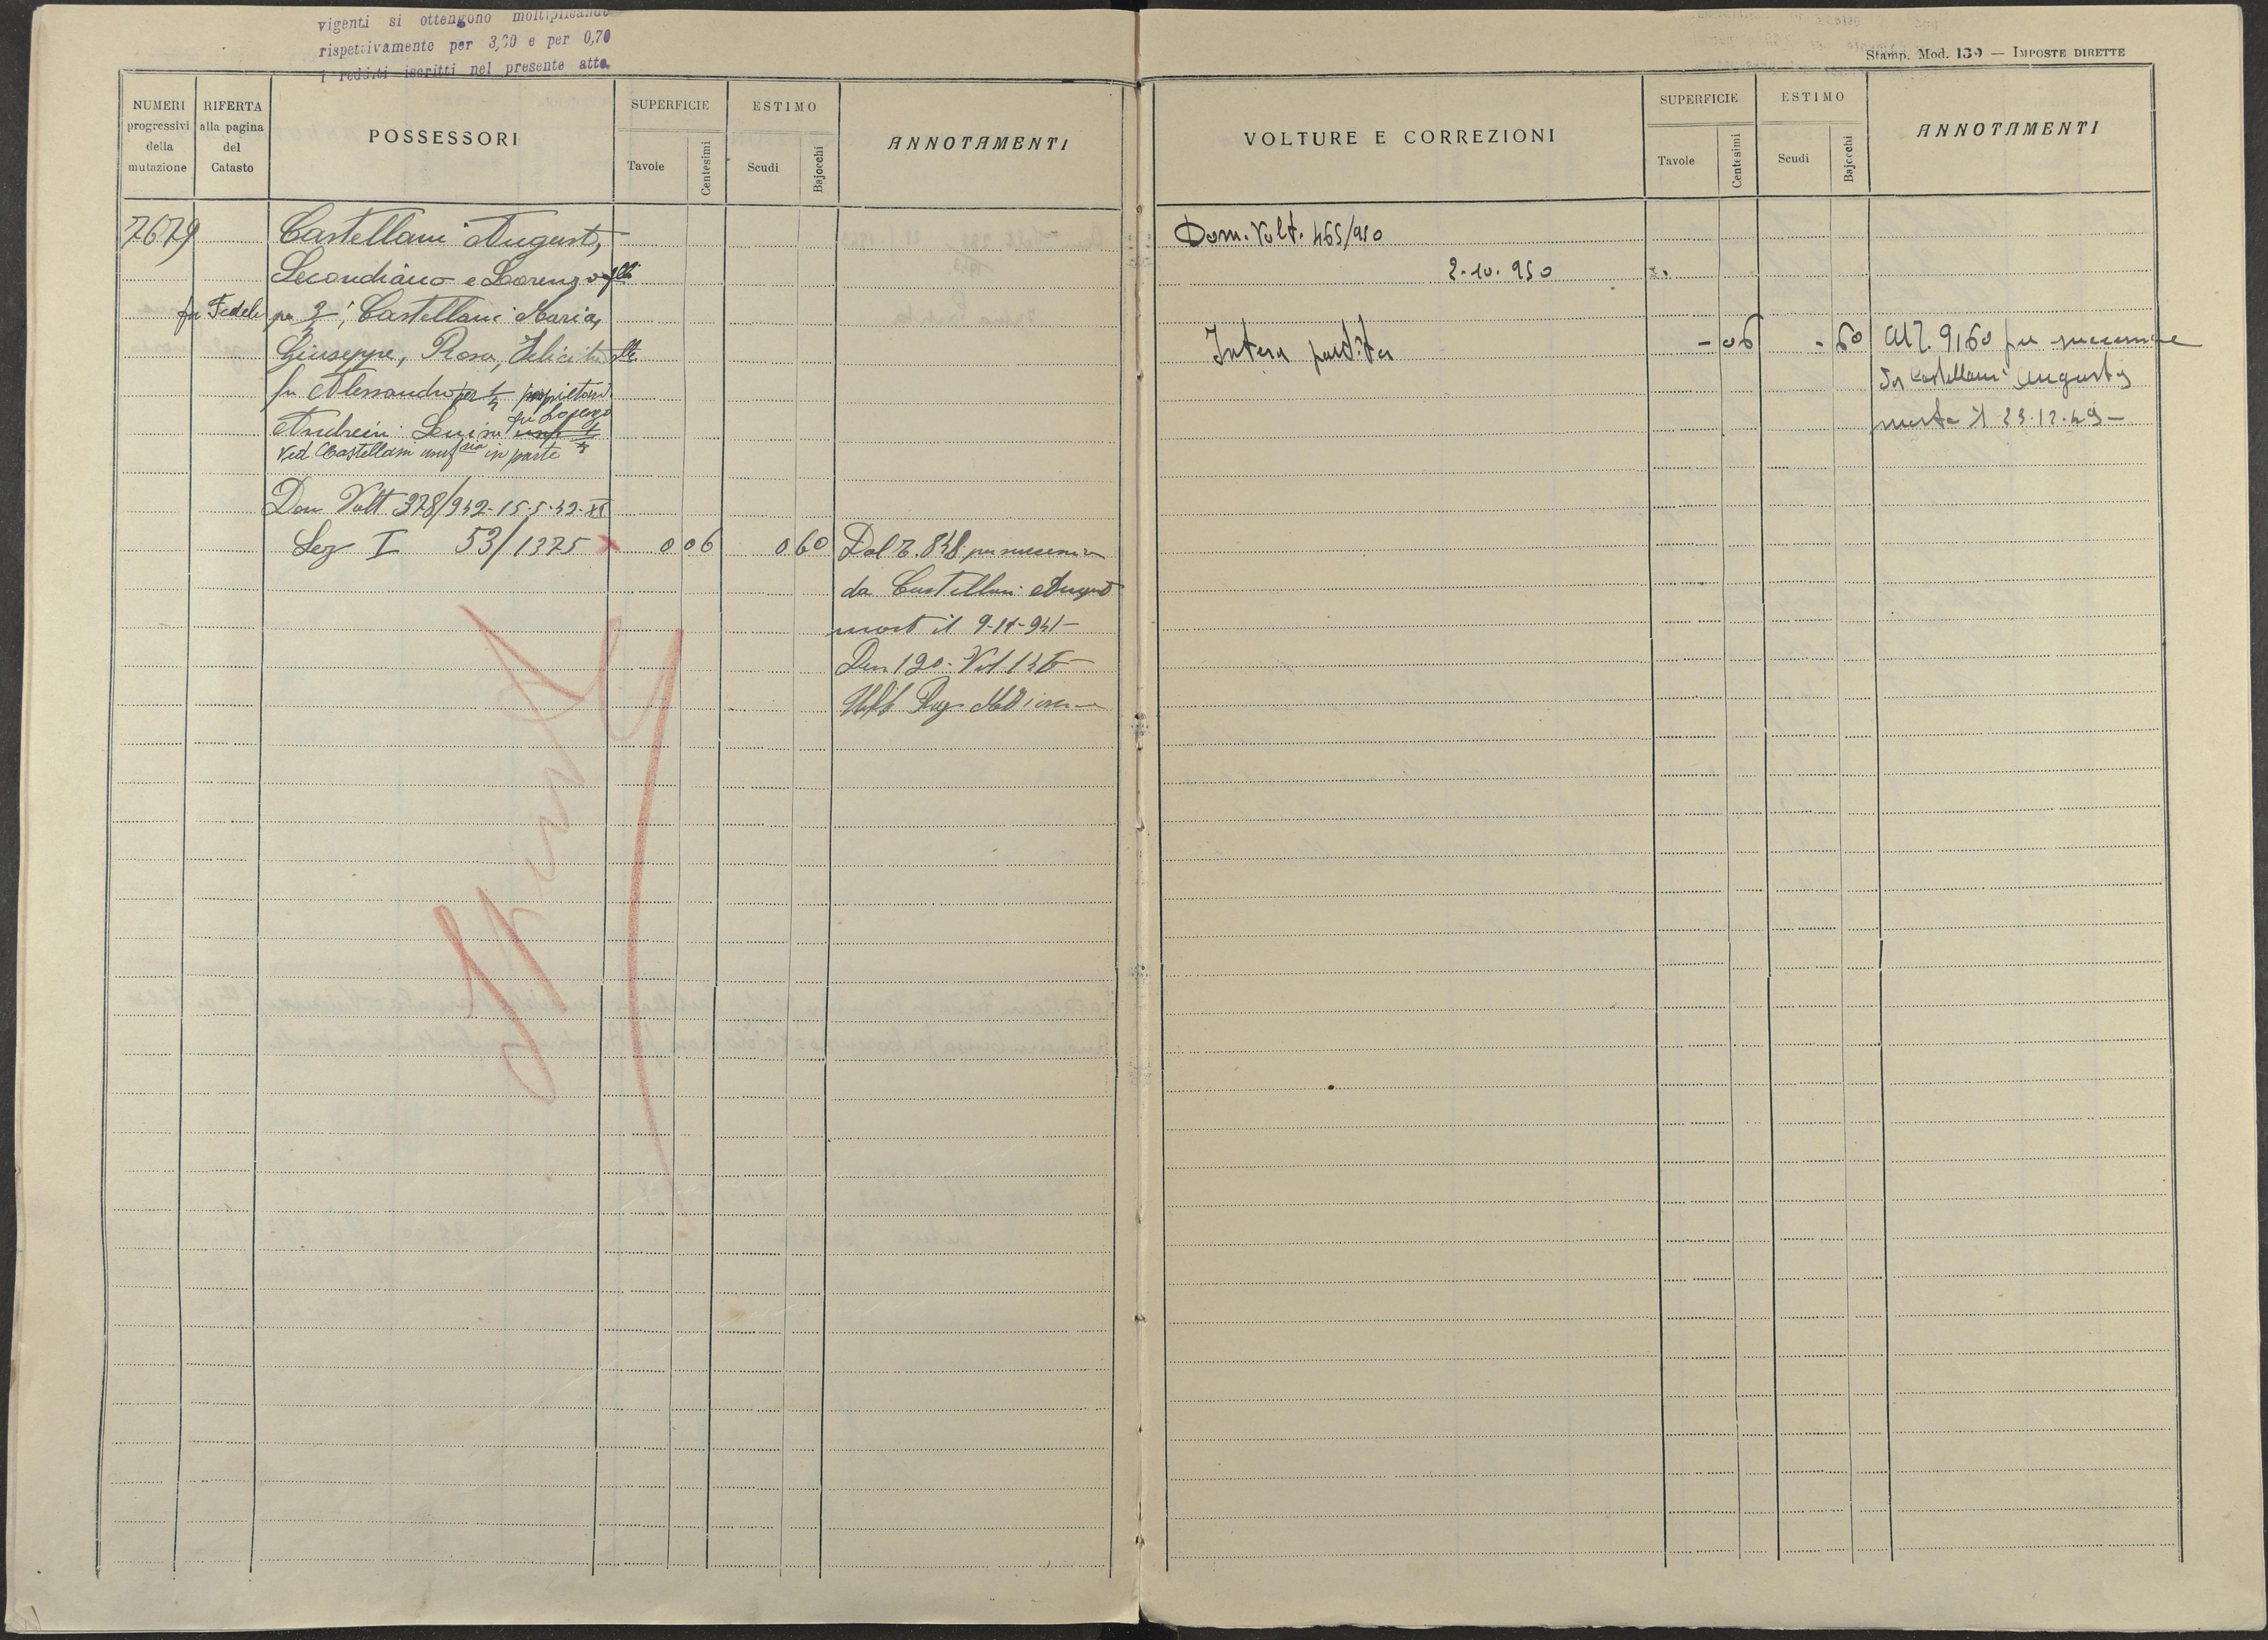 vigenti si ottengono moltiplicando
rispettivamente per 3,30 e per 0,70
i redditi iscritti nel presente atto.
NUMERI progressivi della mutazione
RIFERTA alla pagina del Catasto
POSSESSORI
SUPERFICIE
Tavole
Centesimi
ESTIMO
Scudi
Bajocchi
ANNOTAMENTI
7679 Castellani Augusto,
Secondiano e Lorenzo flli
fu Fedele per 3/4; Castellani Maria,
Giuseppe, Rosa, Felicita
fu Alessandro per 1/4 proprietari
Andreini Luisa fu Lorenzo
Ved Castellani in parte
Dom Volt 378/942-15-5-42-XX
Sez I 53/1375 x 0 06 0 60 Dal 7. 848 per
da Castellani August
mort il 9-11-941-
Den 120. Vol 146
Uff. Reg.
Stamp. Mod. 139 — IMPOSTE DIRETTE
VOLTURE E CORREZIONI
SUPERFICIE
Tavole
Centesimi
ESTIMO
Scudi
Bajocchi
ANNOTAMENTI
Dom. Volt. 465/950
2-10-950
Intera partita - 06 - 60 Al 7. 9160 per successione
Castellani Augusto
morto il 23-12-49-